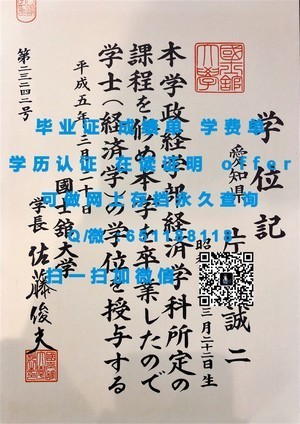 学位記
愛知県
誠二
三月二十二日生
本学政経学部経済学科所定の
課程を修め本学を卒業したので
学士（経済学）の学位を授与する
平成五年三月二十日
國士舘大学
学長 佐藤俊夫
第二三二四二号
國士舘大學
毕业证 成绩单 学费单
学历认证 在读证明 offer
可做网上存档永久查询
Q/微
扫一扫加微信